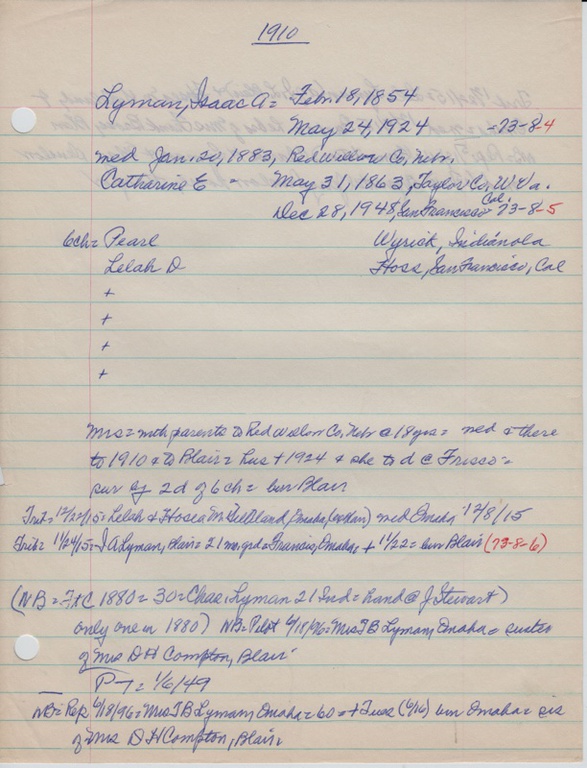 1910
Lyman, Isaac A = Feb. 18, 1854
May 24, 1924 -73-8-4
med Jan. 20, 1883, Redwillow Co, Nebr.
Catharine E - May 31, 1863, Taylor Co, W Va.
Dec 28, 1948, San Francisco Cal. 73-8-5
6ch = Pearl Wyrick, Indianola
Lelah D Hoss, San Francisco, Cal
+
+
+
+
Mrs = with parents to Redwillow Co, Nebr @ 18 yrs = med & there
to 1910 & to Blair = hus + 1924 & she to d @ Frisco =
sur by 2d of 6ch = bur Blair
Trib = 12/22/15 = Lelah & Hosea McClelland, Omaha, med Omaha 12/8/15
Trib = 11/24/15 = I A Lyman, Blair = 21 mo grd = Francis, Omaha, + 11/22 = bur Blair (73-8-6)
(NB = 1880 = 30 = Chas. Lyman 21 Ind = hand @ J Stewart)
only one in 1880) NB = 6/18/96 = Mrs T B Lyman, Omaha = sister
of Mrs D H Compton, Blair
P-T = 1/6/49
NB = Rep 6/18/96 = Mrs T B Lyman, Omaha = 60 = + Tues (6/16) bur Omaha = sis
of Mrs D H Compton, Blair